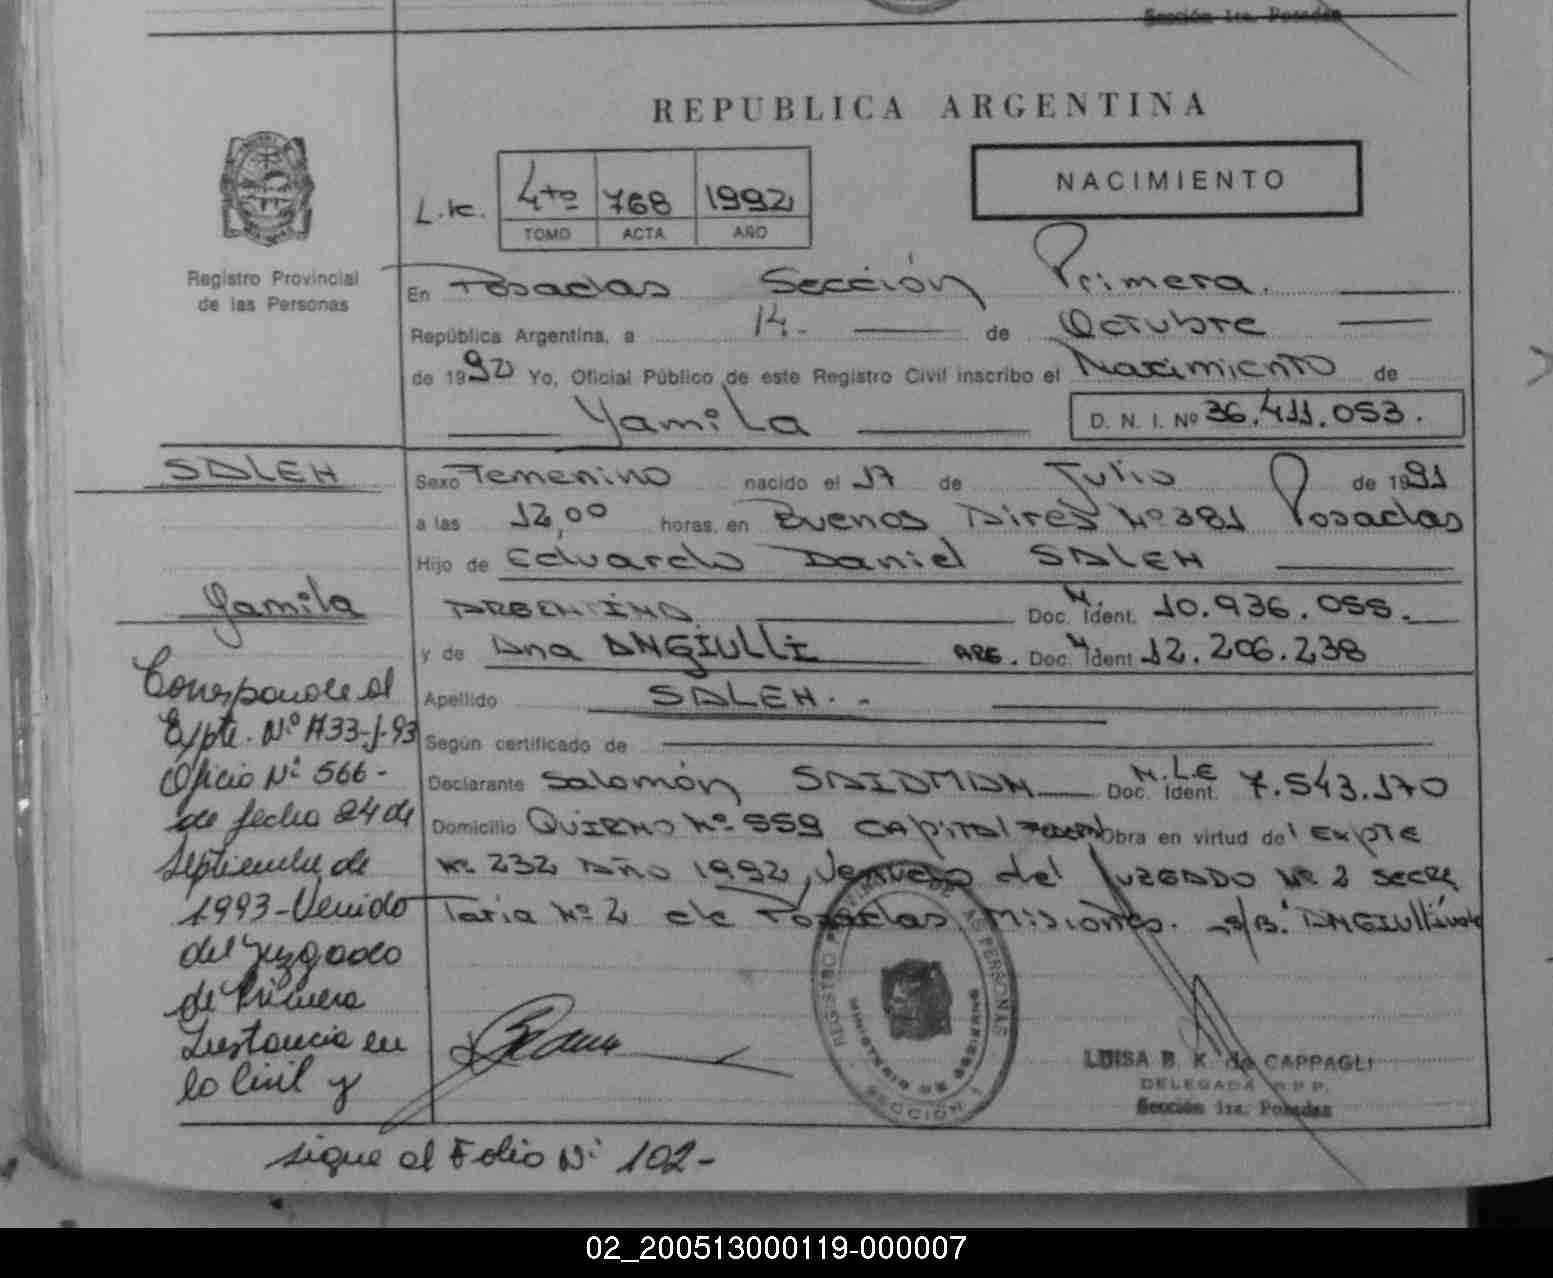 Sección 1ra. Posadas
REPUBLICA ARGENTINA
NACIMIENTO
L.tc. 4to 768 1992
TOMO ACTA AÑO
Registro Provincial
de las Personas
En Posadas Sección Primera.
República Argentina, a 14.- de Octubre
de 1992 Yo, Oficial Público de este Registro Civil inscribo el Nacimiento de
Yamila D. N. I. Nº 36.411.053.
SALEH
Sexo Femenino nacido el 17 de Julio de 1991
a las 12,00 horas, en Buenos Aires Nº 381 Posadas
Hijo de Eduardo Daniel SALEH
Yamila
ARGENTINO Doc. Ident. M. 10.936.055.-
y de Ana ANGIULLI ARG. Doc. Ident M 12.206.238
Apellido SALEH.-
Según certificado de
Declarante Salomón SAIDMAN Doc. Ident. M.L.E 7.543.170
Domicilio QUIRNO Nº 559 CAPITAL Obra en virtud del EXPTE
Nº 232 Año 1992, venido del JUZGADO Nº 2 SECRE
Taria Nº 2 de Posadas Misiones. s/B. ANGIULLI
Corresponde al
Expte. Nº 1133-J-93
Oficio Nº 566-
de fecha 24 de
Septiembre de
1993-Venido
del Juzgado
de Primera
Instancia en
lo Civil y
REGISTRO PROVINCIAL DE LAS PERSONAS
MINISTERIO DE GOBIERNO
SECCIÓN 1
LUISA B. K. de CAPPAGLI
DELEGADA R.P.P.
Sección 1ra. Posadas
sigue al Folio Nº 102-
02_200513000119-000007